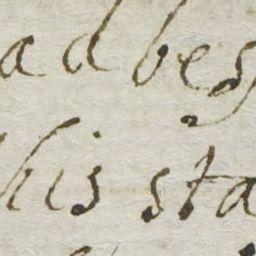 ad beg
his sta